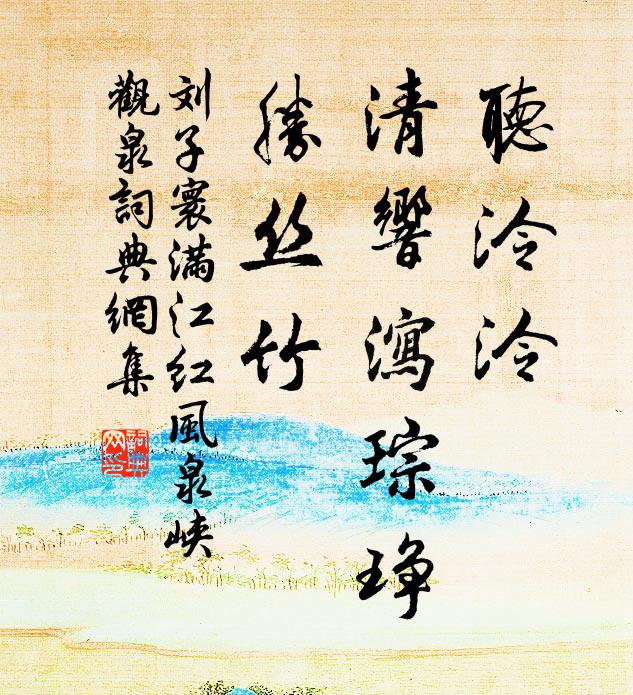 聽泠泠
清響瀉琮琤
勝丝竹
刘子寰满江红風泉峡
觀泉詞典網集